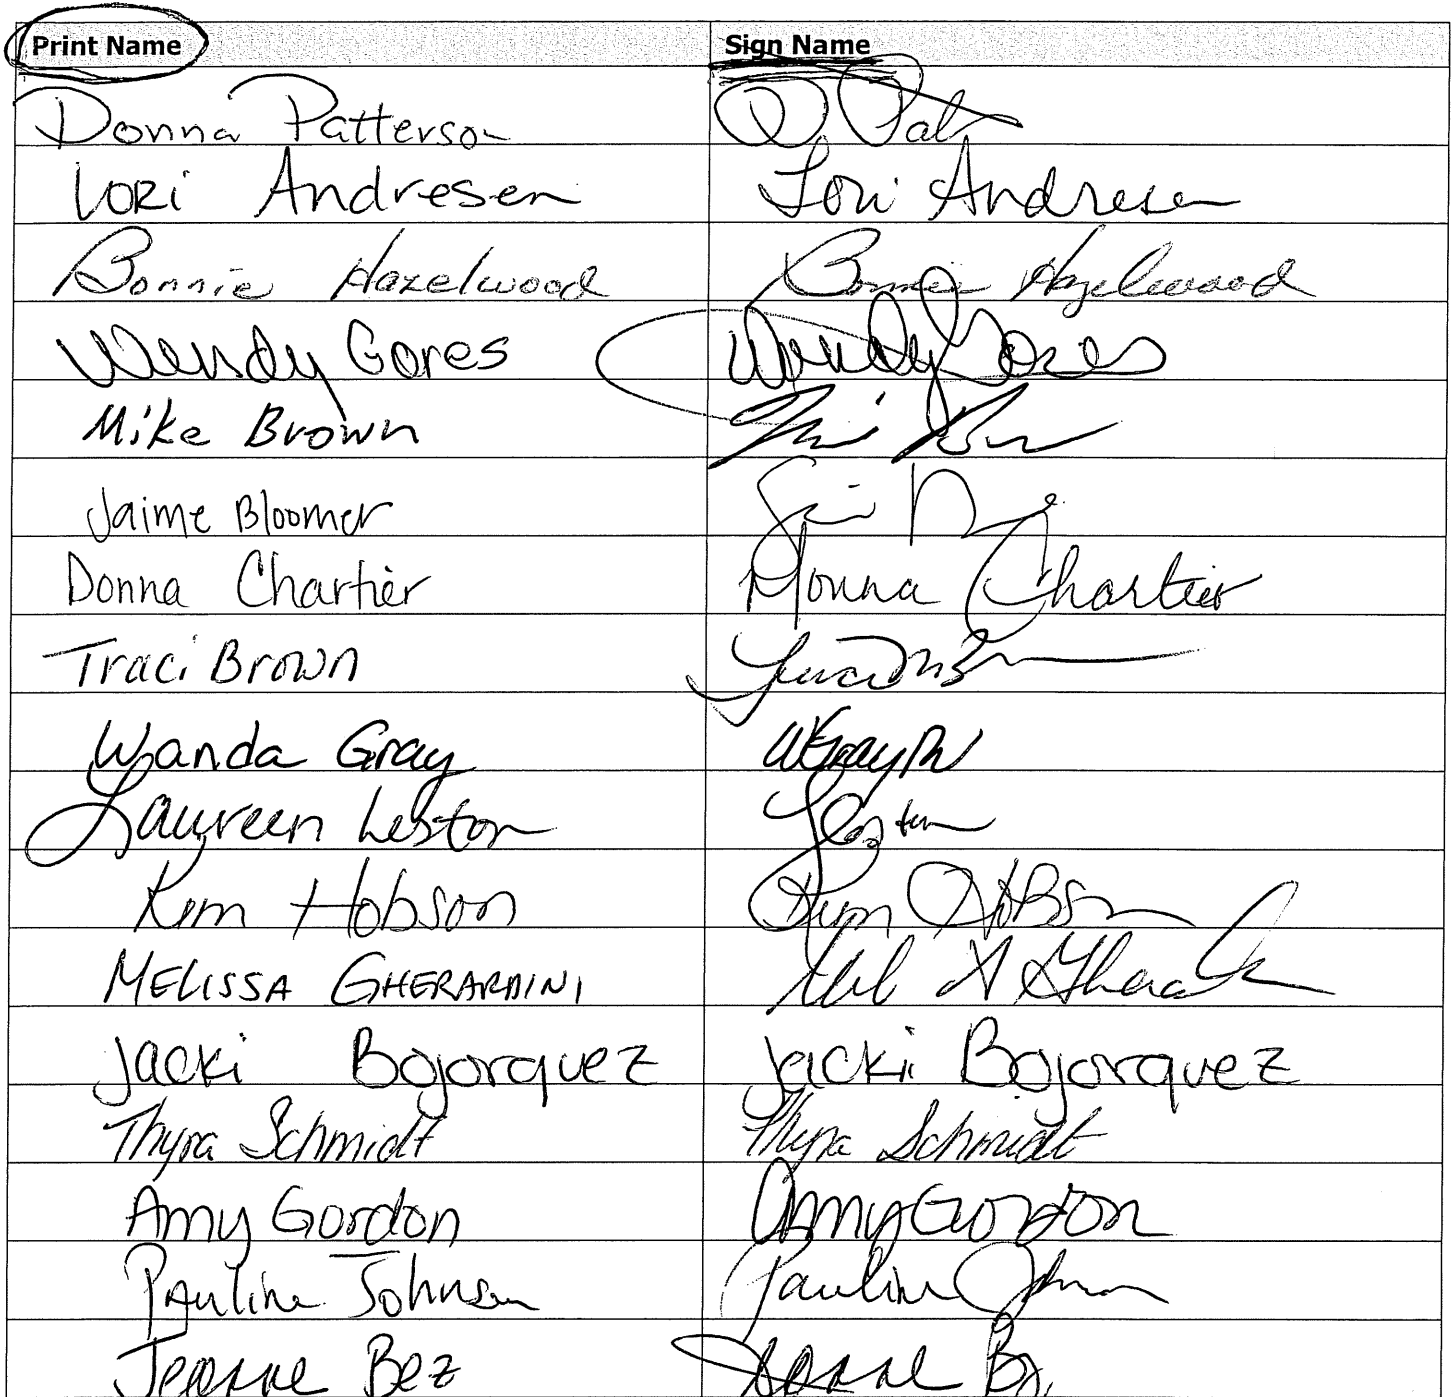 Print Name Sign Name
Donna Patterson D Pat
Lori Andresen Lori Andresen
Bonnie Hazelwood Bonnie Hazelwood
Wendy Gores Wendy Gores
Mike Brown
Jaime Bloomer
Donna Chartier Donna Chartier
Traci Brown
Wanda Gray WGray RN
Laureen Leston Leston
Kim Hobson Kim Hobson
MELISSA GHERARDINI Mel A Gherar
Jacki Bojorquez Jacki Bojorquez
Thyra Schmidt Thyra Schmidt
Amy Gordon Amy Gordon
Pauline Johnson Pauline Johnson
Jeanne Bez Jeanne Bez